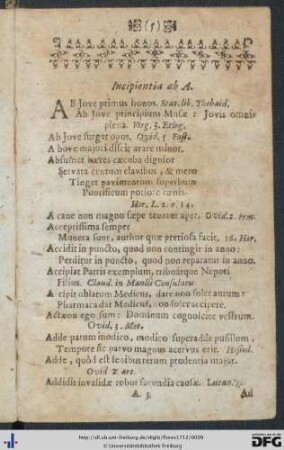 (5)
Incipientia ab A.
AB Jove primus honos. Stat. lib. Thebaid.
Ab Jove principium Musæ: Jovis omnia
plena. Virg. 3. Eclog.
Ab Jove surget opus. Ovid. 5 Fast.
A bove majori discit arare minor.
Absumet hæres cæcuba dignior
Servata centum clavibus, & mero
Tinget pavimentum superbum
Pontificum potiore cœnis.
Hor. L. 2. o. 14.
A cane non magno sæpe tenetur aper. Ovid. 2. rem.
Acceptissima semper
Munera sunt, author quæ pretiosa facit. 16. Her.
Accidit in puncto, quod non contingit in anno:
Perditur in puncto, quod non reparatur in anno.
Accipiat Patris exemplum, tribuatque Nepoti
Filius. Claud. in Manlii Consulatu
Accipit oblatum Medicus, dare non solet aurum:
Pharmaca dat Medicus, non solet accipere.
Actæon ego sum: Dominum cognoscite vestrum.
Ovid. 3. Met.
Adde parum modico, modico superadde pusillum,
Tempore sic parvo magnus acervus erit. Hesiod.
Adde, quòd est
Ovid 2. art.
Addidit invalidæ robur facundia causæ. Lucan.
A 3 Ad
http://dl.ub.uni-freiburg.de/diglit/flores1712/0009
© Universitätsbibliothek Freiburg
gefördert durch die
DFG